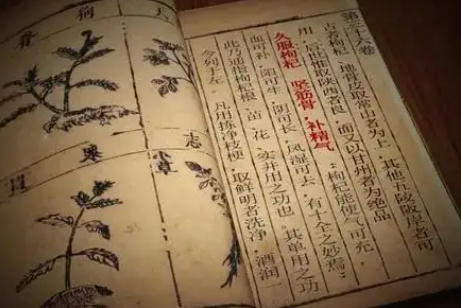 第三十六卷
古者枸杞、地骨皮取常山者为上，其他丘陵阪岸者可
用，后世惟取陕西者良，而又以甘州者为绝品
久服枸杞 坚筋骨，补精气：枸杞能使气可充，
血可补，阳可生，阴可长，风湿可去，有十全之妙焉：
此乃通指枸杞根、苗、花、实并用之功也。其单用之功
今列于左 凡用拣净枝梗，取鲜明者洗净，酒润一
志
小草
寒